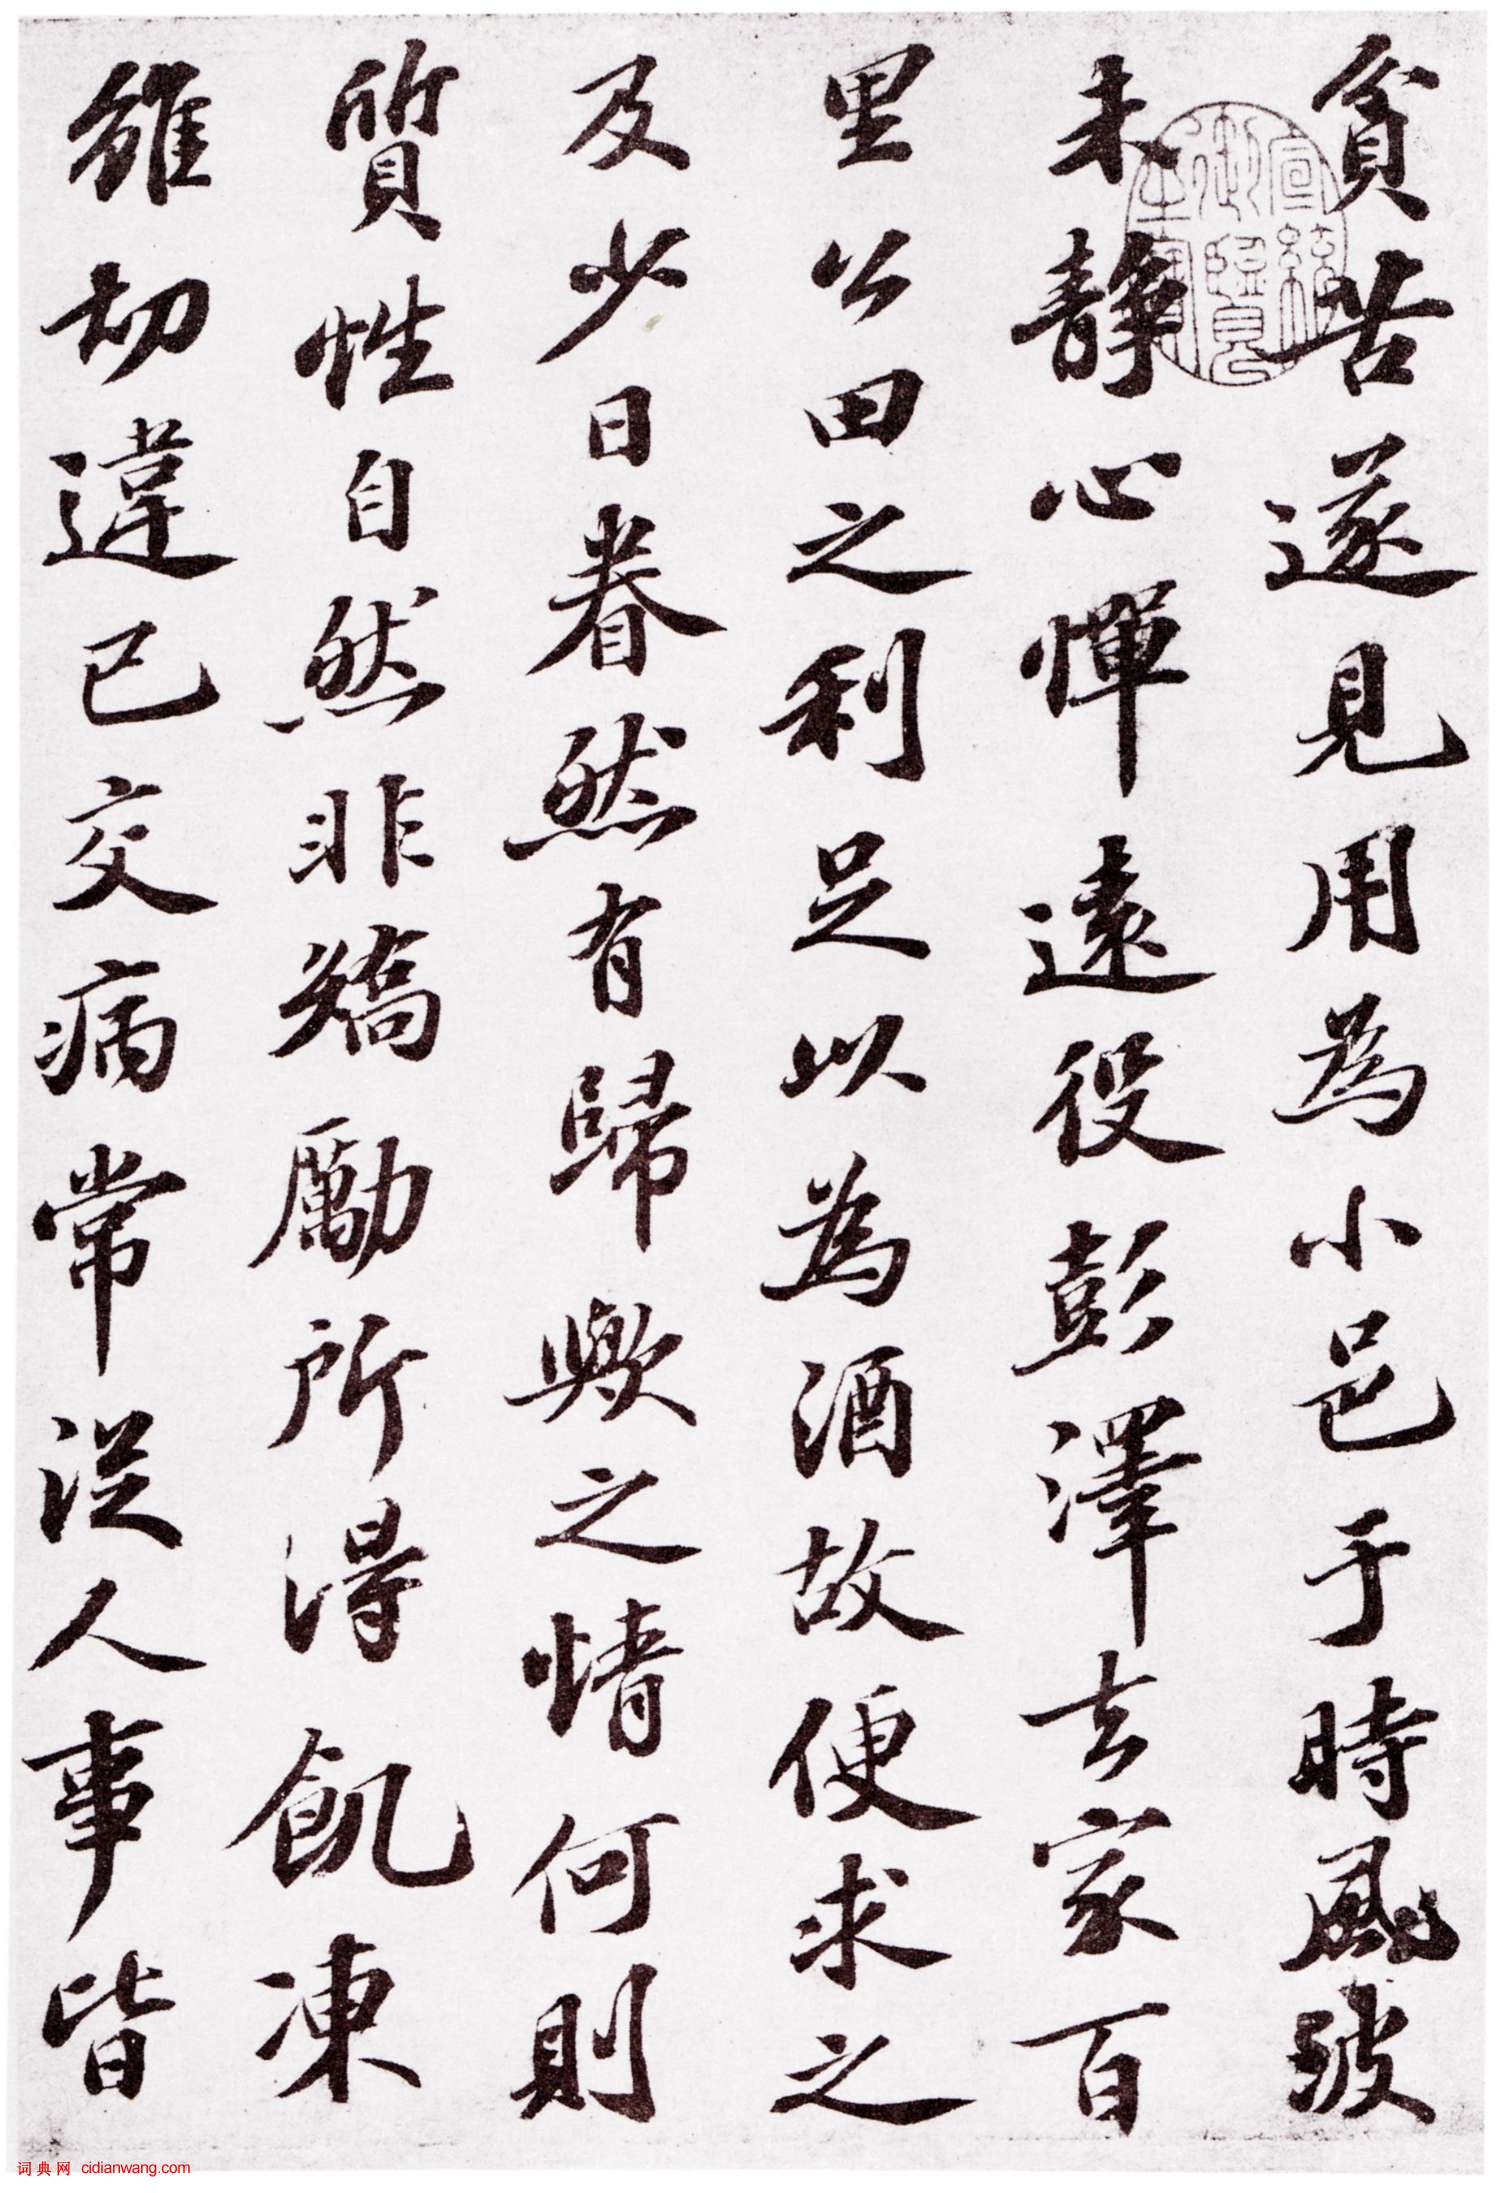 貧苦遂見用為小邑于時風波
未靜心憚遠役彭澤去家百
里公田之利足以為酒故便求之
及少日眷然有歸歟之情何則
質性自然非矯勵所得飢凍
雖切違已交病常從人事皆
宣統
御覽
之寶
词典网 cidianwang.com